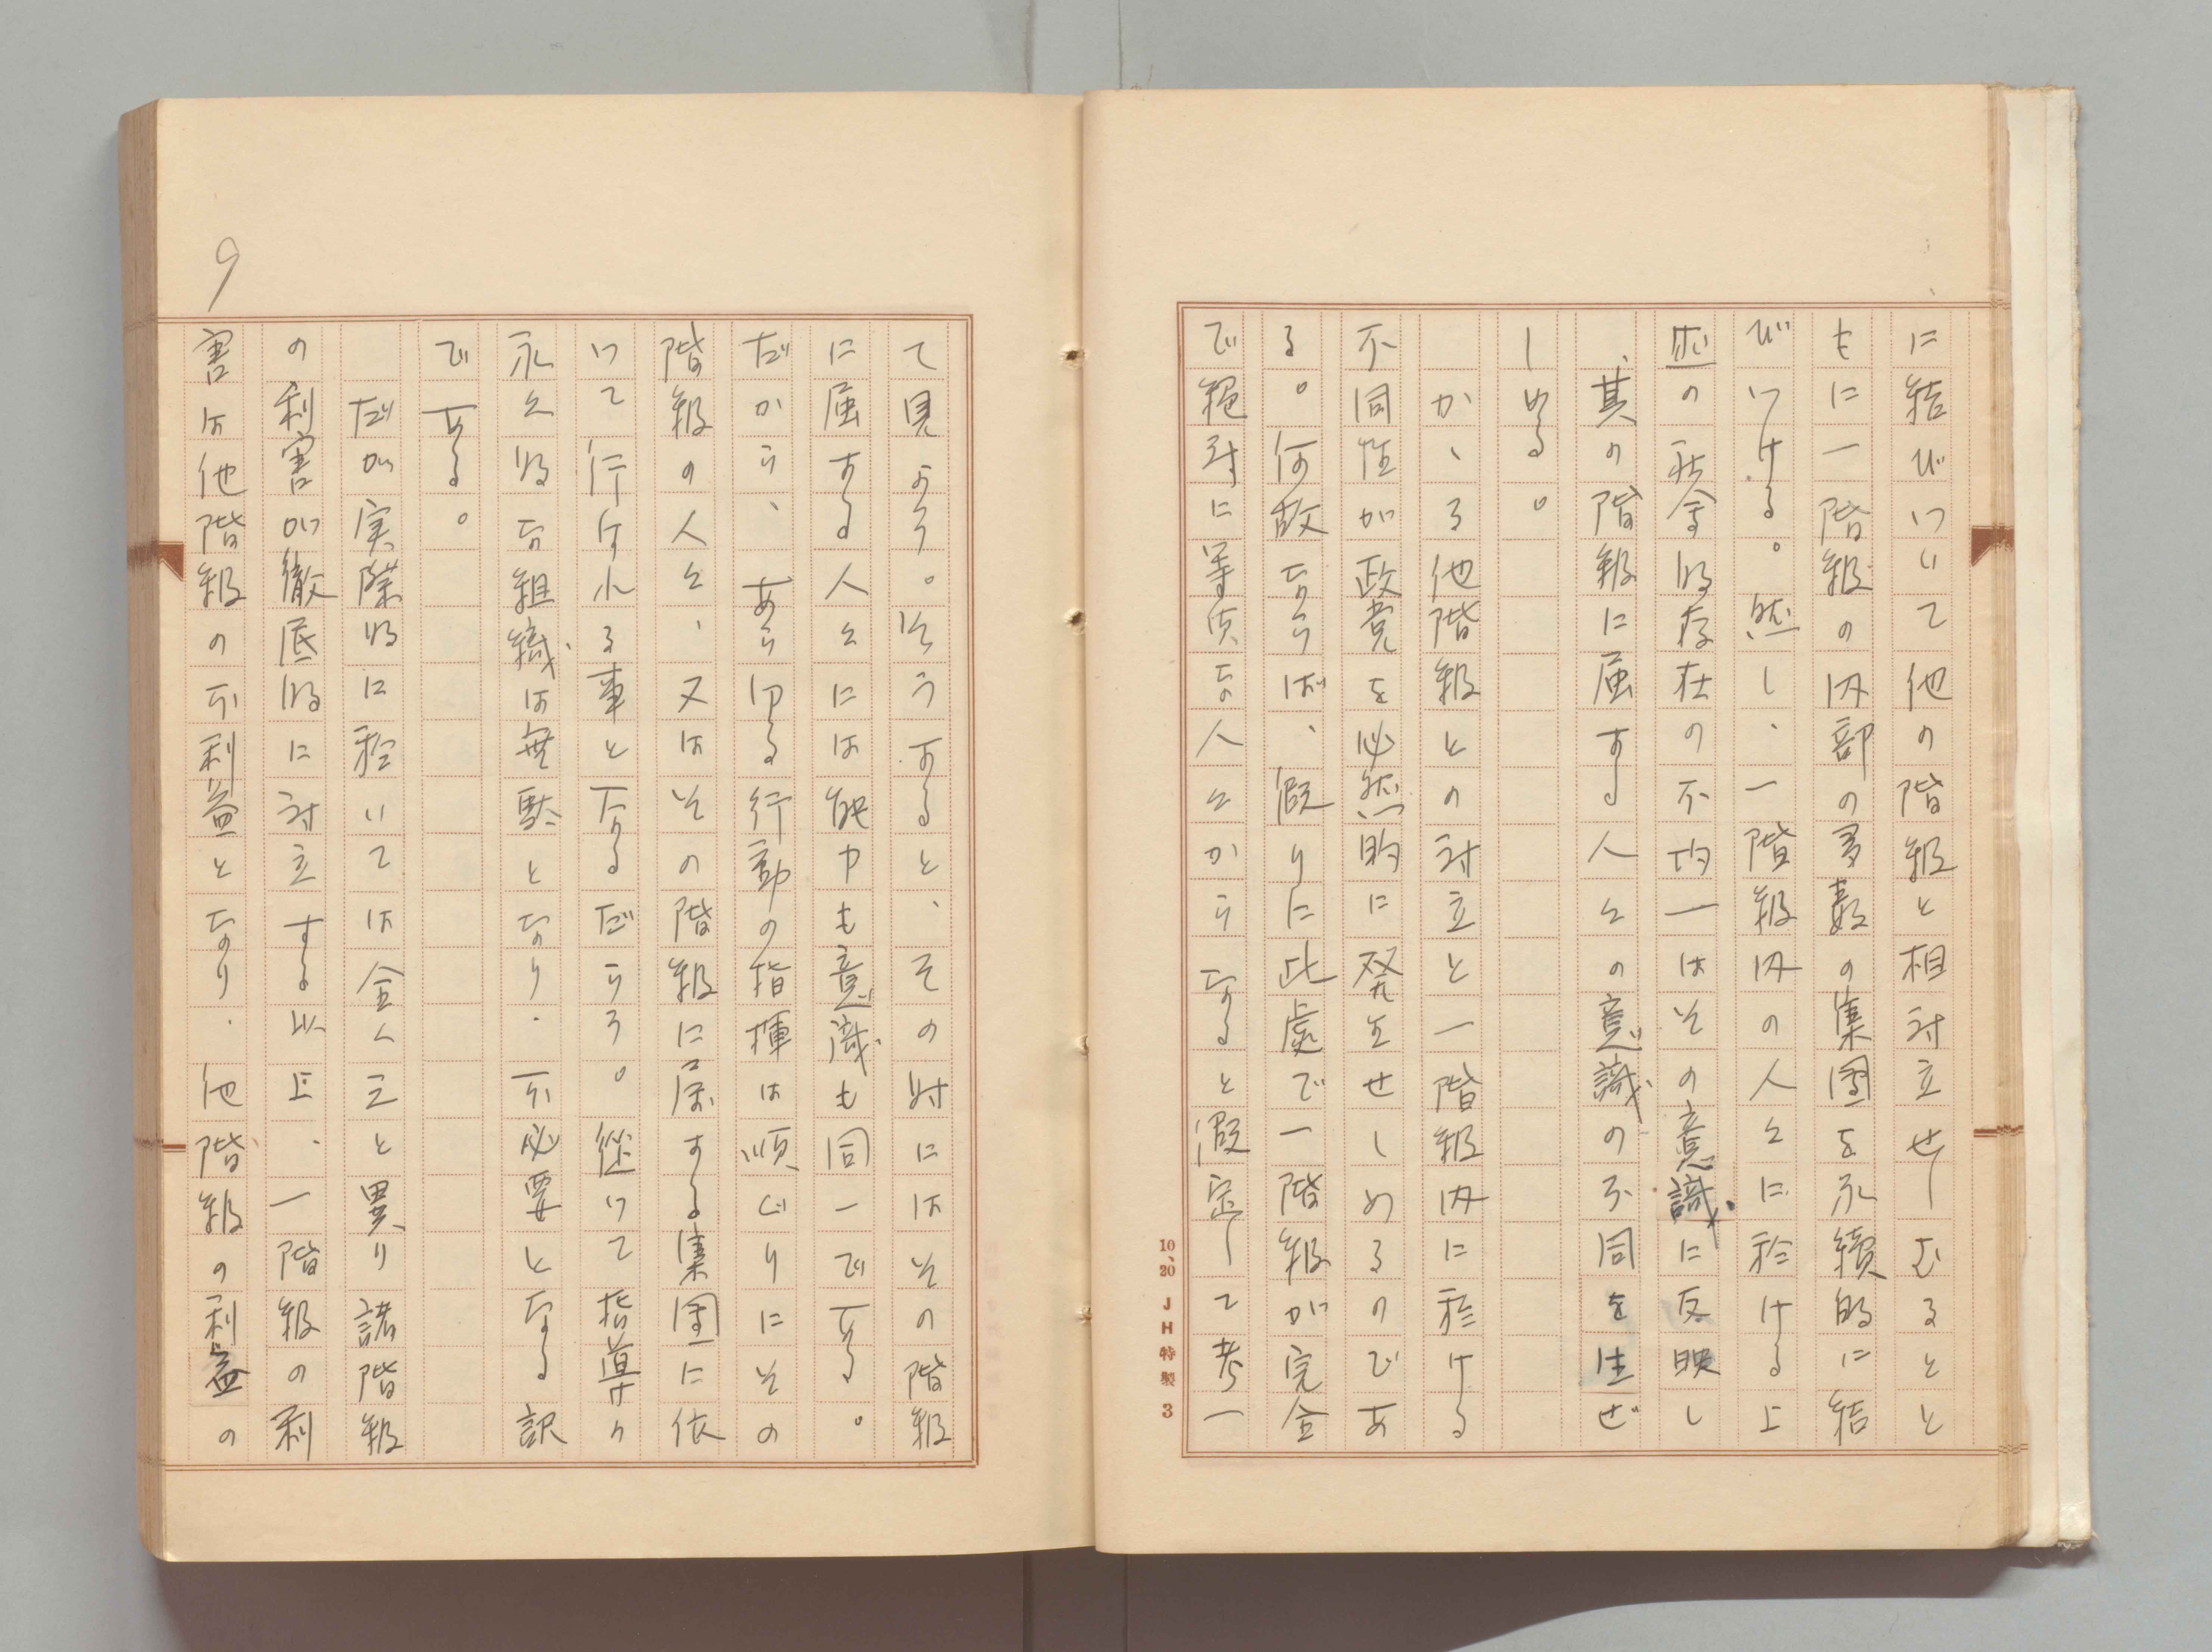 に結びついて他の階級と相対立せしむるとと
もに一階級の内部の多数の集団を永続的に結
びつける。然し、一階級内の人々に於ける上
述の社会的存在の不均一はその意識に反映し
、其の階級に属する人々の意識の不同を生ぜ
しめる。
かゝる他階級との対立と一階級内に於ける
不同性が政党を必然的に発生せしめるのであ
る。何故ならば、假りに此處で一階級が完全
で絶対に等質な人々からなると假定して考へ
て見よう。そうすると、その時にはその階級
に属する人々には能力も意識も同一である。
だから、あらゆる行動の指揮は順ぐりにその
階級の人々、又はその階級に属する集団に依
つて行はれる事となるだらう。從つて指導の
永久的な組織は無駄となり、不必要となる訳
である。
だが実際的に於いては全く之と異り諸階級
の利害が徹底的に対立する以上、一階級の利
害は他階級の不利益となり、他階級の利益の
9
10、20 JH特製 3